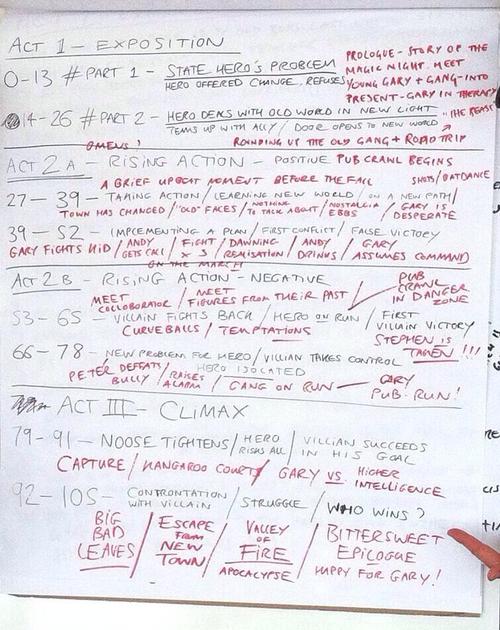 ACT 1 - EXPOSITION
0-13 # PART 1 - STATE HERO'S PROBLEM
HERO OFFERED CHANGE. REFUSES
PROLOGUE - STORY OF THE
MAGIC NIGHT. MEET
YOUNG GARY + GANG - INTO
PRESENT - GARY IN THERAPY
14-26 # PART 2 - HERO DEALS WITH OLD WORLD IN NEW LIGHT
TEAMS UP WITH ALLY / DOOR OPENS TO NEW WORLD
OMENS!
ROUNDING UP THE OLD GANG + ROAD TRIP
ACT 2A - RISING ACTION - POSITIVE PUB CRAWL BEGINS
A BRIEF UPBEAT MOMENT BEFORE THE FALL
27 - 39 - TAKING ACTION / LEARNING NEW WORLD / ON A NEW PATH /
TOWN HAS CHANGED / "OLD" FACES / NOTHING TO TALK ABOUT / NOSTALGIA EBBS / GARY IS DESPERATE
39 - 52 - IMPLEMENTING A PLAN / FIRST CONFLICT / FALSE VICTORY
GARY FIGHTS KID / ANDY GETS CALL / FIGHT X 3 / DAWNING REALISATION / ANDY DRINKS / GARY ASSUMES COMMAND
ON THE MARCH
ACT 2B - RISING ACTION - NEGATIVE
PUB
CRAWL
IN DANGER
ZONE
MEET COLLOBORATOR / MEET FIGURES FROM THEIR PAST
53 - 65 - VILLAIN FIGHTS BACK / HERO ON RUN / FIRST VILLAIN VICTORY
CURVEBALLS / TEMPTATIONS
STEPHEN IS
TAKEN!!!
66 - 78 - NEW PROBLEM FOR HERO / VILLIAN TAKES CONTROL
HERO ISOLATED
PETER DEFEATS BULLY / RAISES ALARM / GANG ON RUN - GARY
PUB-RUN!
ACT III - CLIMAX
79 - 91 - NOOSE TIGHTENS / HERO RISKS ALL / VILLIAN SUCCEEDS IN HIS GOAL
CAPTURE / KANGAROO COURT / GARY VS. HIGHER INTELLIGENCE
92 - 105 - CONFRONTATION WITH VILLAIN / STRUGGLE / WHO WINS?
BIG
BAD
LEAVES
ESCAPE
FROM
NEW
TOWN
VALLEY
OF
FIRE
APOCALYPSE
BITTERSWEET
EPILOGUE
HAPPY FOR GARY!